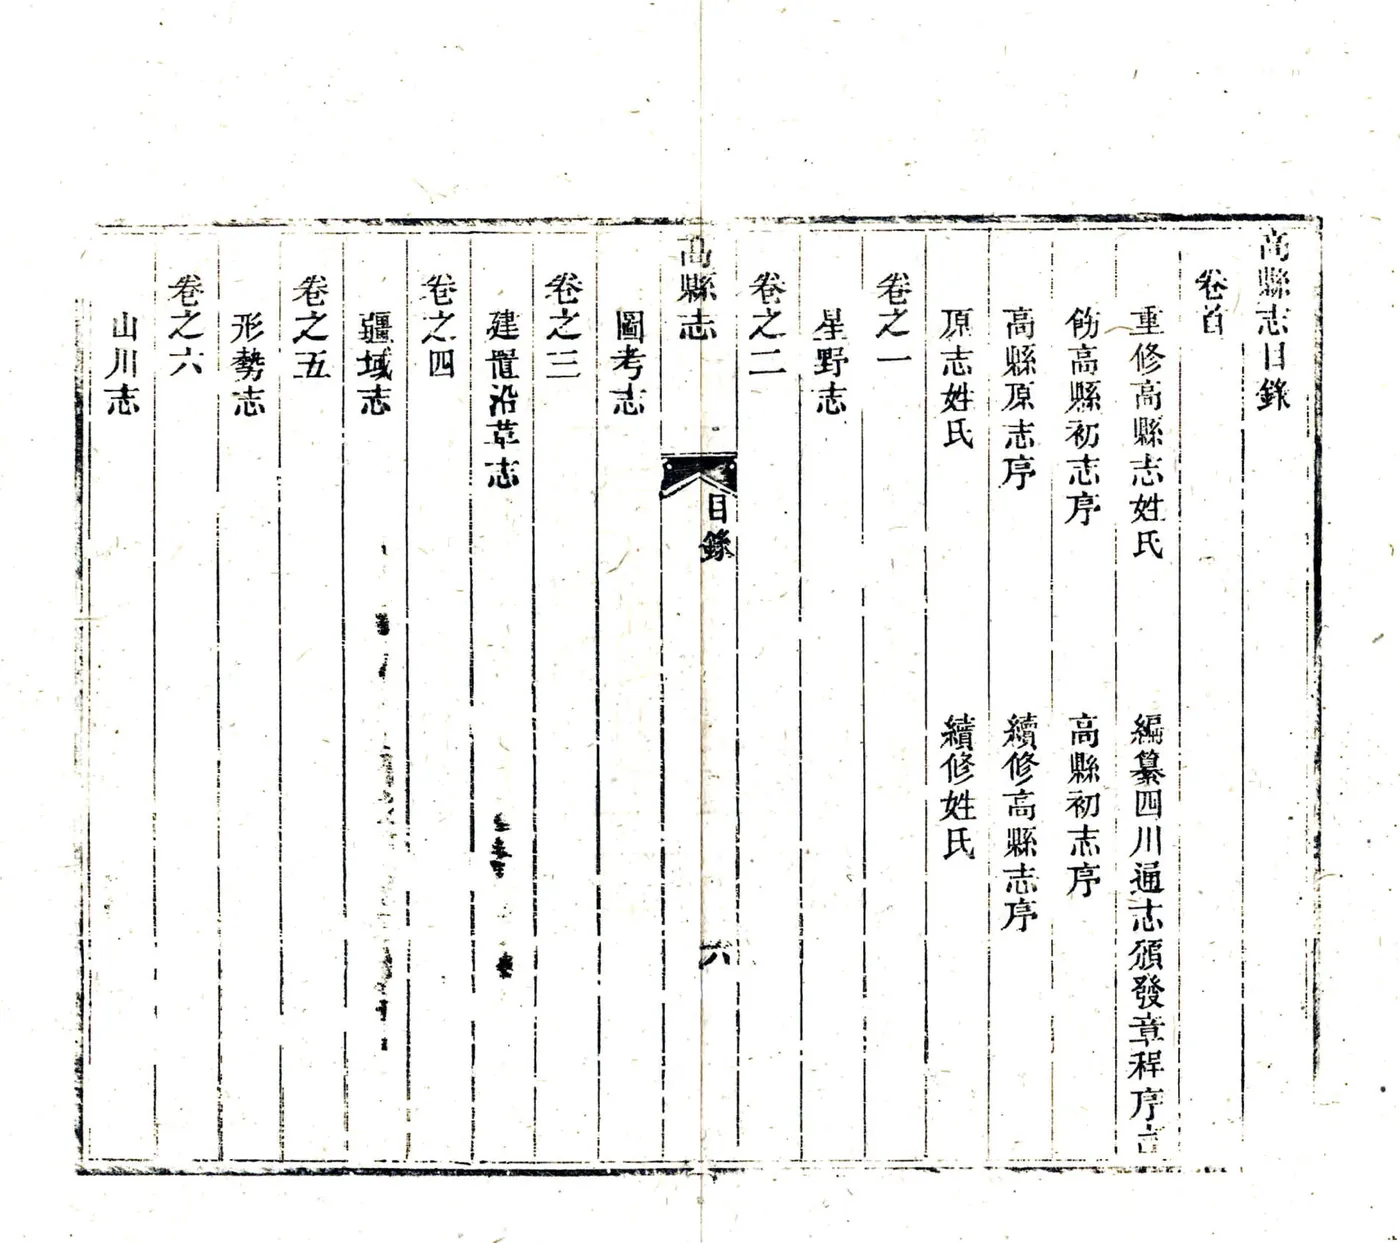 高縣志目錄
卷首
重修高縣志姓氏
編纂四川通志頒發章程序言
飭高縣初志序
高縣初志序
高縣原志序
續修高縣志序
原志姓氏
續修姓氏
卷之一
星野志
卷之二
高縣志
目錄
六
圖考志
卷之三
建置沿革志
卷之四
疆域志
卷之五
形勢志
卷之六
山川志